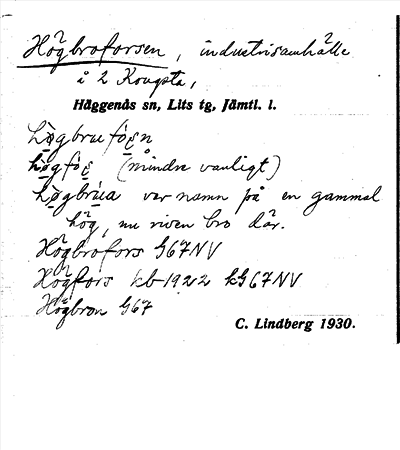 Högbroforsen, industrisamhälle
i 2 Kougsta,
Häggenås sn, Lits tg, Jämtl. l.
(mindre vanligt)
var namn på en gammal
hög, nu riven bro där.
Högbrofors G67NV
Högfors kb-1922 kG67NV
Högbron G67
C. Lindberg 1930.